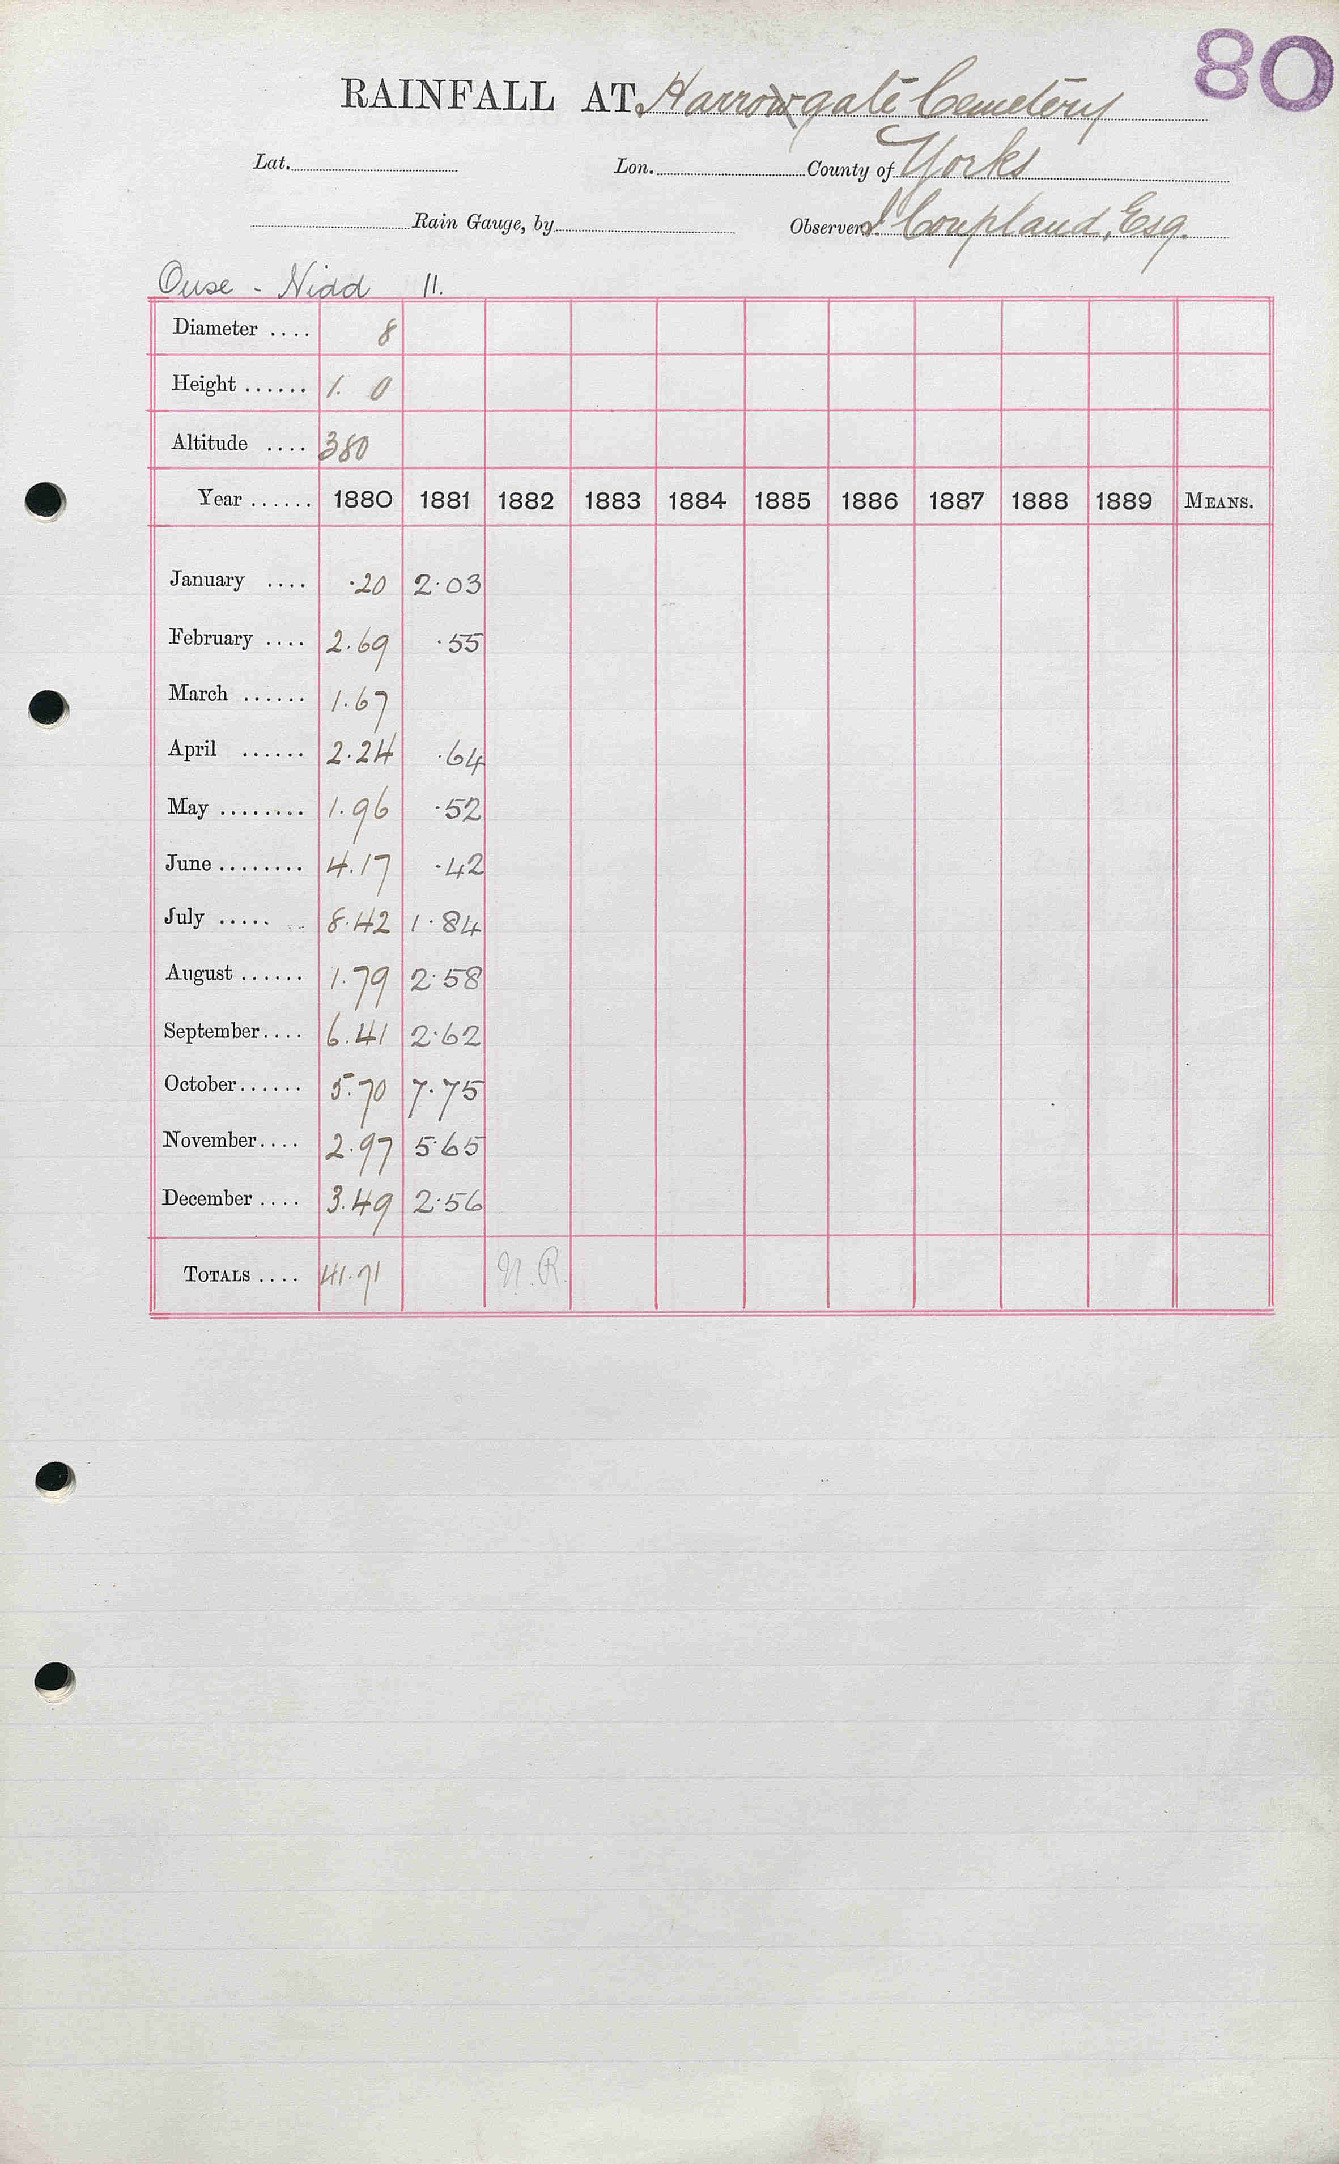 80
RAINFALL AT Harrowgate Cemetery
Lat. Lon. County of Yorks
Rain Gauge, by Observer, Coupland, Esq.
Ouse - Nidd 11.
Diameter .... 8
Height ...... 1. 0
Altitude .... 380
Year ...... 1880 1881 1882 1883 1884 1885 1886 1887 1888 1889 MEANS.
January .... .20 2.03
February .... 2.69 .55
March ...... 1.67
April ...... 2.24 .64
May ........ 1.96 .52
June ........ 4.17 .42
July ..... .. 8.42 1.84
August ...... 1.79 2.58
September.... 6.41 2.62
October...... 5.70 7.75
November.... 2.97 5.65
December .... 3.49 2.56
TOTALS .... 41.71 N.R.